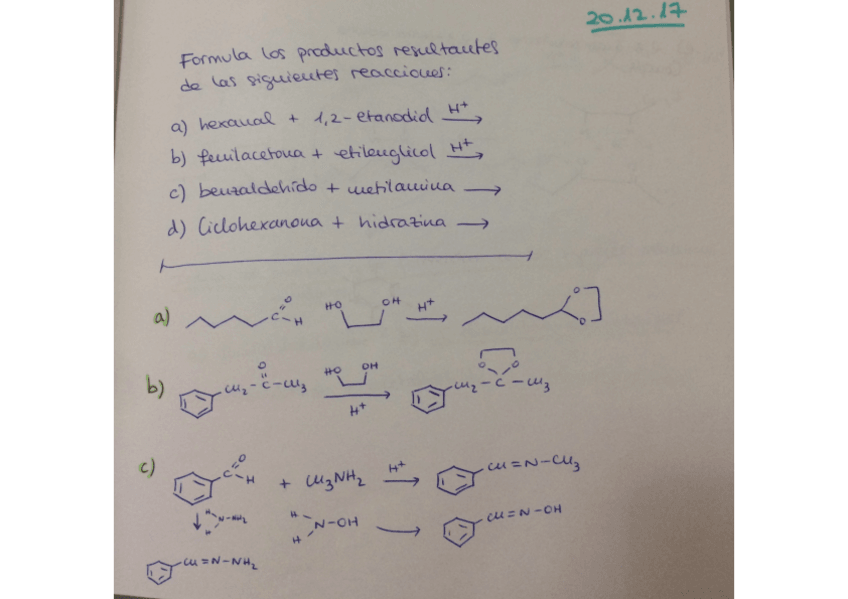 20.12.17
Formula los productos resultantes
de las siguientes reacciones:
a) hexanal + 1,2-etanodiol H⁺ →
b) fenilacetona + etilenglicol H⁺ →
c) benzaldehído + metilamina →
d) Ciclohexanona + hidrazina →
a) C O H HO OH H⁺ → O O
b) CH₂ - C - CH₃ O HO OH H⁺ → CH₂ - C - CH₃ O O
c) C O H + CH₃NH₂ H⁺ → CH = N - CH₃
↓ H H N - NH₂ H H N - OH → CH = N - OH
CH = N - NH₂